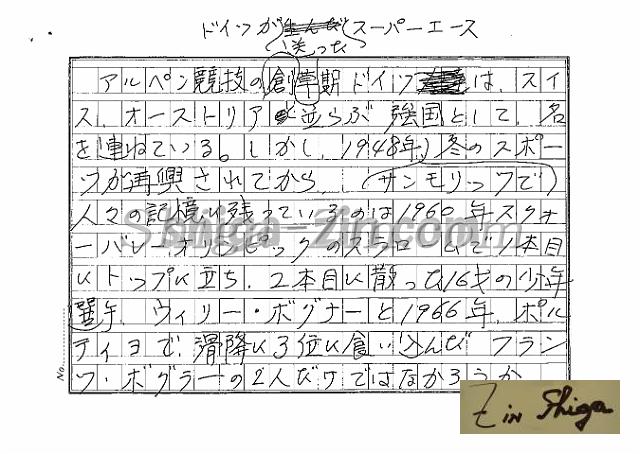 ドイツが送った スーパーエース
アルペン競技の創草期ドイツは、スイ
ス、オーストリアと並らぶ強国として、名
を連ねている。しかし、1948年、冬のスポー
ツが再興されてから (サンモリッツで)
人々の記憶に残っているのは1960年スクォ
ーバレーオリンピックのスラロームで1本目
にトップに立ち、2本目に散った16才の少年
選手、ウィリー・ボグナーと1966年、ポル
ティヨで、滑降に3位に食い込んだ フラン
ツ・ボグラーの2人だけではなかろうか
No.
Shiga-Zin.com
Z in Shiga